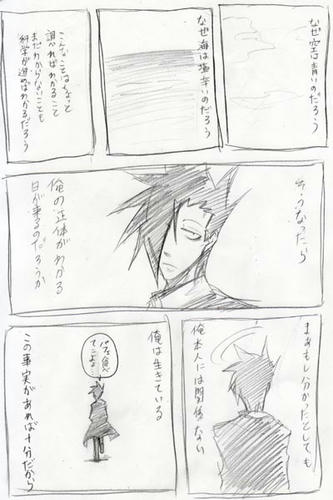 なぜ空は青いのだろう
なぜ海は塩辛いのだろう
こんなことはちょっと
調べればわかること
まだわからないことも
科学が進めばわかるだろう
そうなったら
俺の正体がわかる
日が来るのだろうか
まぁもし分かったとしても
俺本人には関係ない
俺は生きている
パフェ食べ
てこよ
この事実があれば十分だから